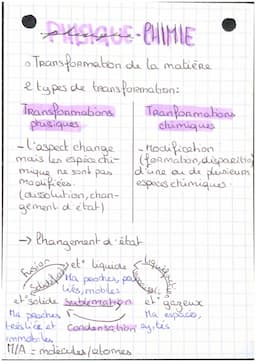 PHYSIQUE-CHIMIE
o Transformation de la matière
2 types de transformation:
Transformations
physiques
- l'aspect change
mais les espèces chi-
mique ne sont pas
modifiées.
(dissolution, chan-
gement d'état)
Tranformations
chimiques
- Modification
(formation, disparition)
d'une ou de plusieurs
especes chimiques.
→ Changement d'état
Fusion
Solidification
et° liquide
Ma proches, peu
liés, mobiles
Liquéfaction
et° solide
Ma proches
liés et
immobiles
Sublimation
Condensation
et° gazeux
Ma espacés,
agités
M/A = molécules/atomes